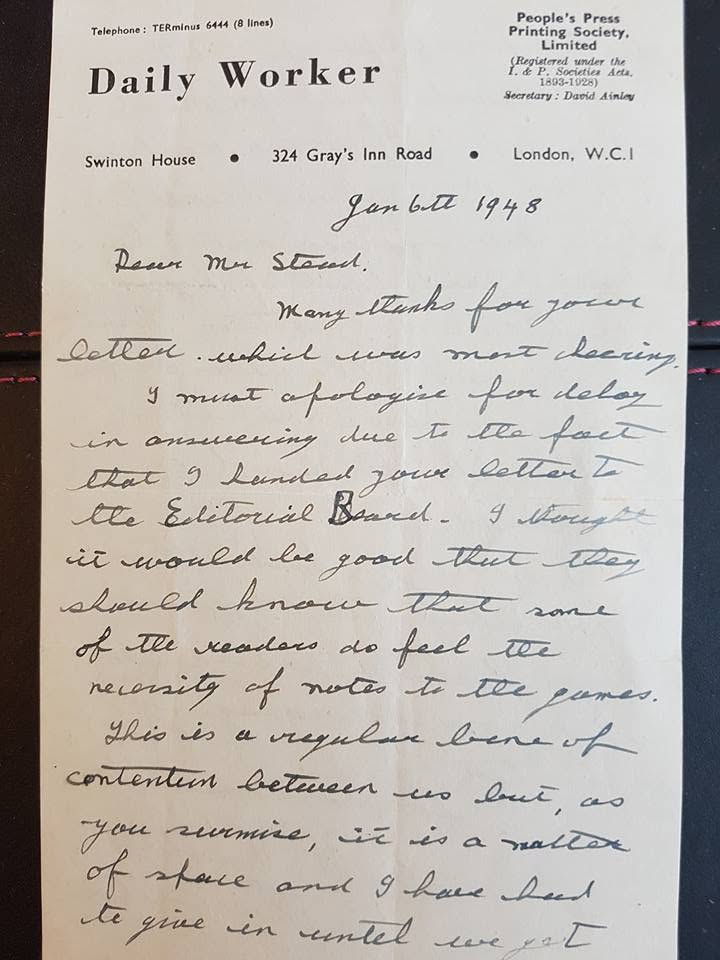 Telephone: TERminus 6444 (8 lines)
Daily Worker
People's Press
Printing Society,
Limited
(Registered under the
I. & P. Societies Acts,
1893-1928)
Secretary: David Ainley
Swinton House • 324 Gray's Inn Road • London, W.C.1
Jan 6th 1948
Dear Mr Stead.
Many thanks for your
letter. which was most cheering.
I must apologise for delay
in answering due to the fact
that I handed your letter to
the Editorial Board. I thought
it would be good that they
should know that some
of the readers do feel the
necessity of notes to the games.
This is a regular bone of
contention between us but, as
you surmise, it is a matter
of space and I have had
to give in until we get